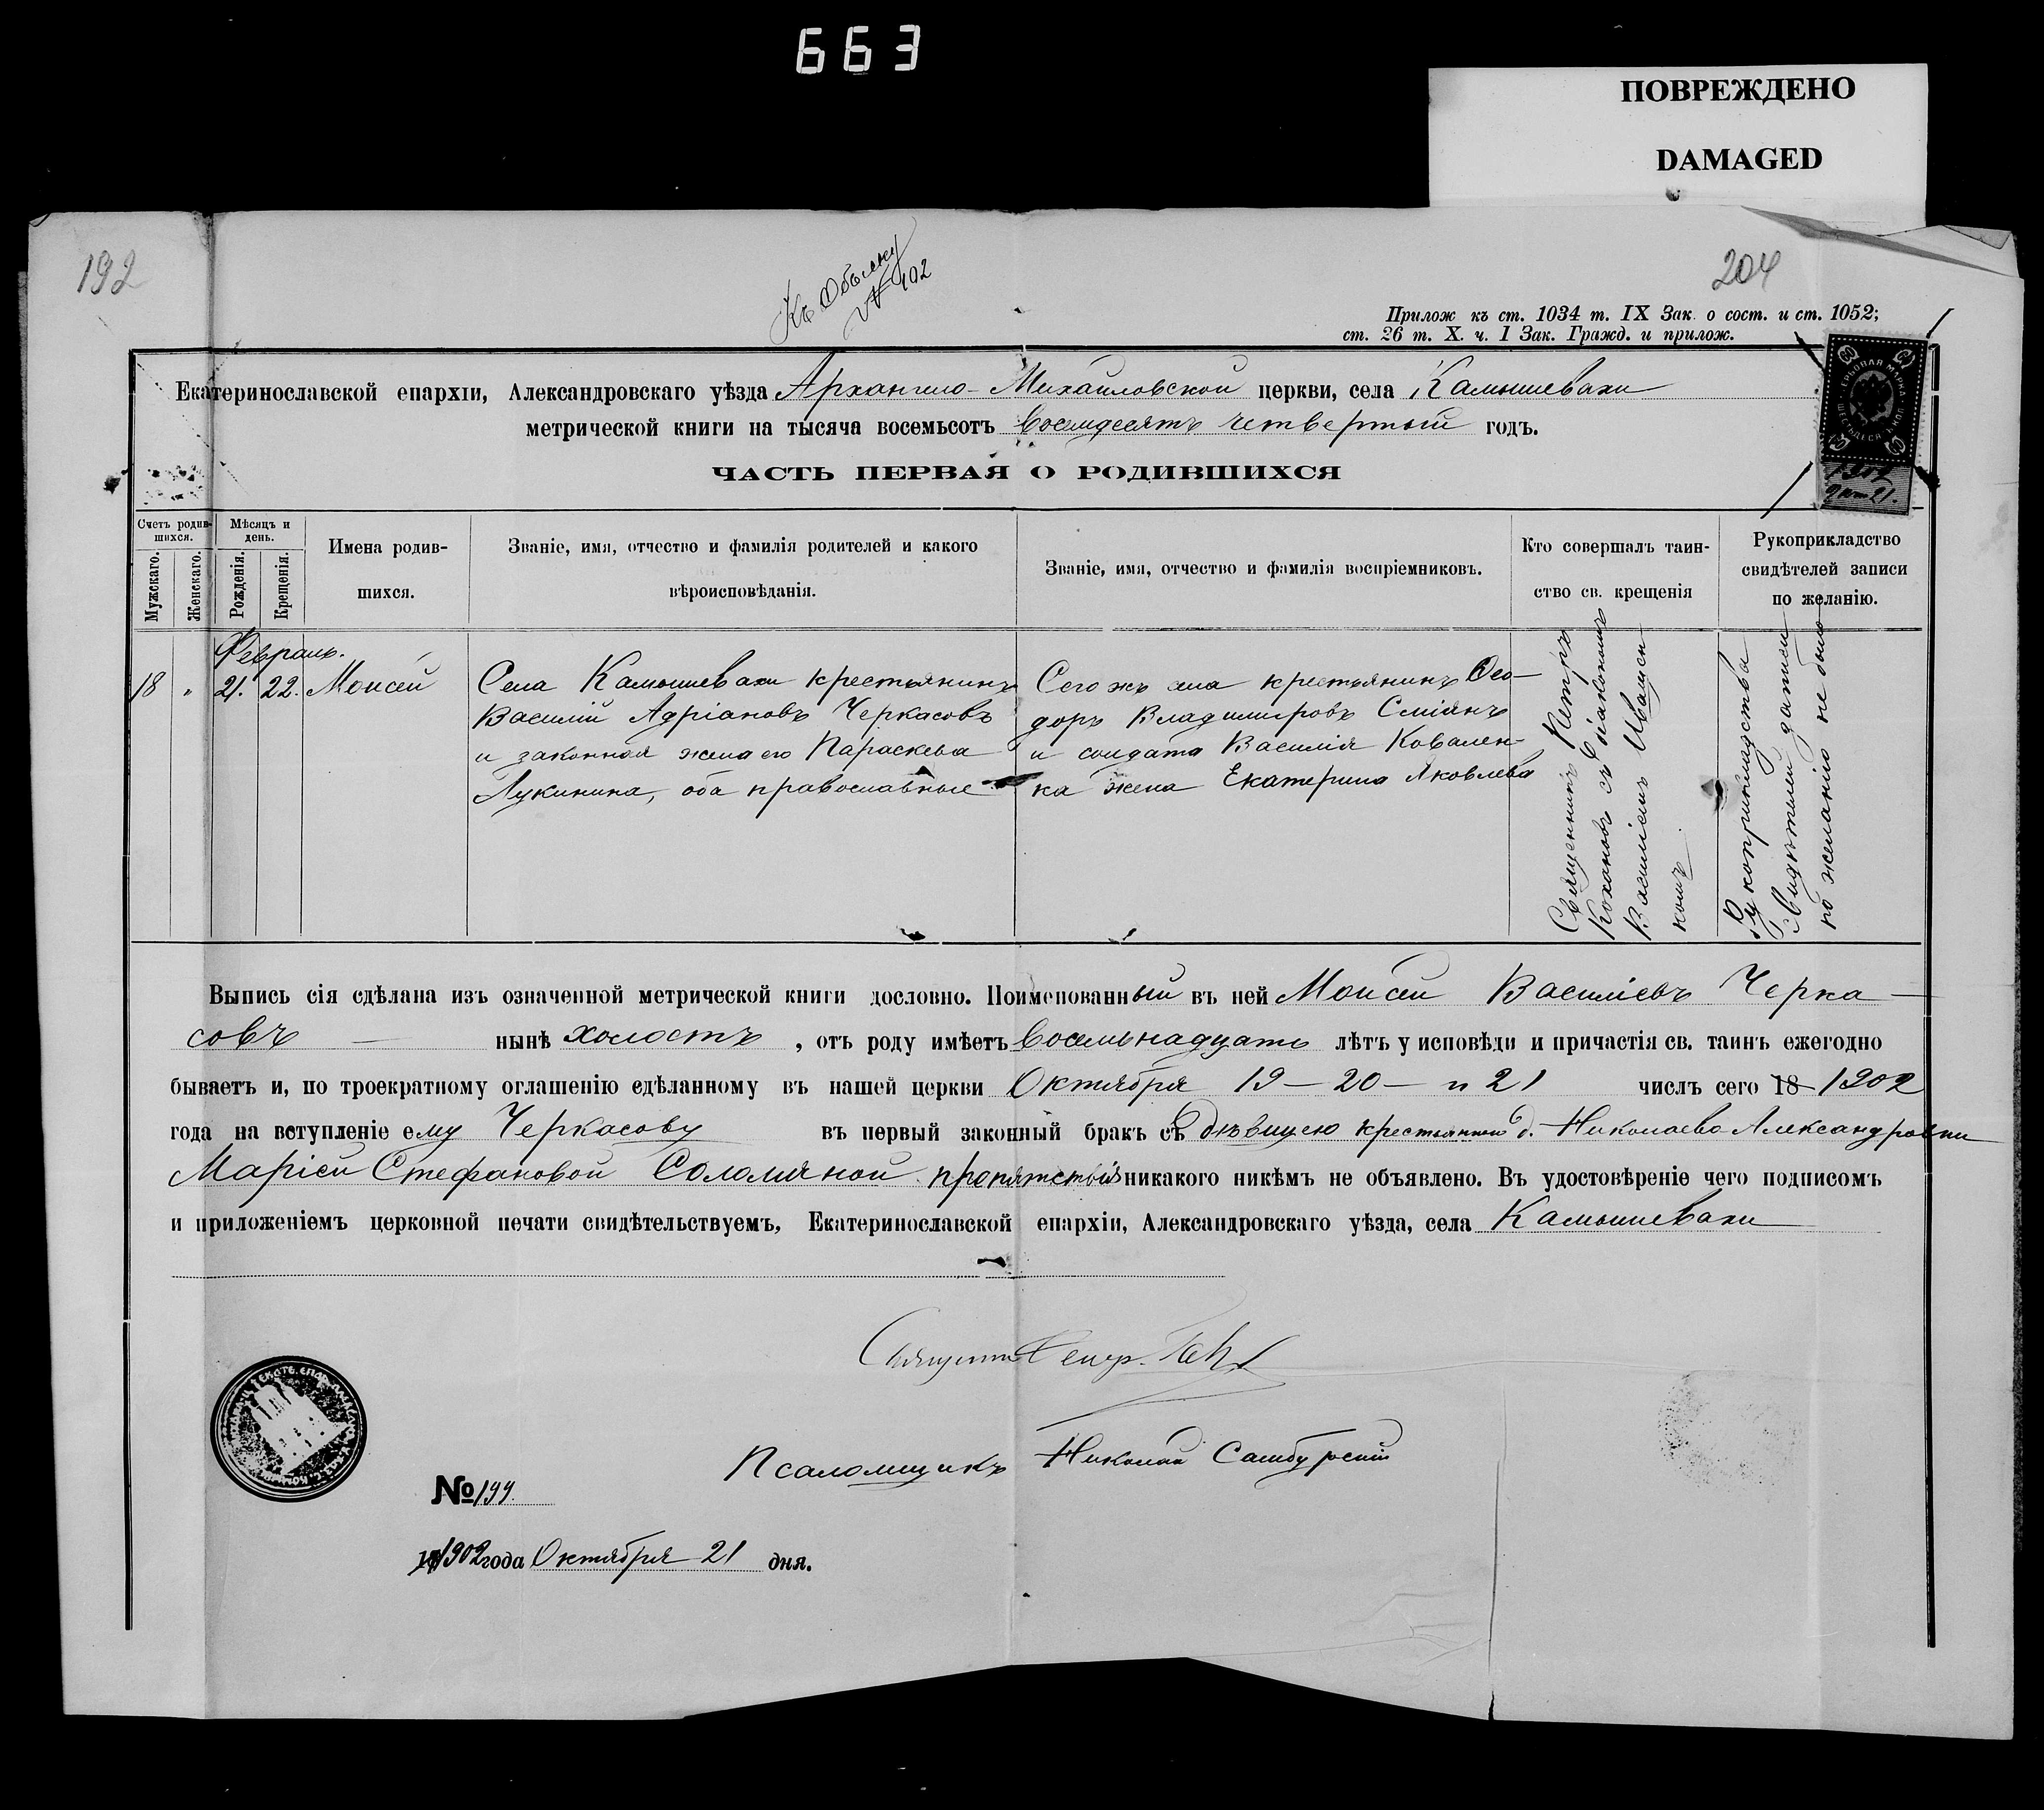 663
ПОВРЕЖДЕНО
DAMAGED
192
Къ Обыску
№ 102
204
Прилож къ ст. 1034 т. IX Зак. о сост. и ст. 1052;
ст. 26 т. X. ч. I Зак. Гражд. и прилож.
Екатеринославской епархіи, Александровскаго уѣзда Архангело-Михайловской церкви, села Камышевахи
метрической книги на тысяча восемьсотъ восемдесятъ четвертый годъ.
ЧАСТЬ ПЕРВАЯ О РОДИВШИХСЯ
Счетъ родив-
шихся.
Мужскаго.
Женскаго.
Мѣсяцъ и
день.
Рожденія.
Крещенія.
Имена родив-
шихся.
Званіе, имя, отчество и фамилія родителей и какого
вѣроисповѣданія.
Званіе, имя, отчество и фамилія воспріемниковъ.
Кто совершалъ таин-
ство св. крещенія
Рукоприкладство
свидѣтелей записи
по желанію.
Февраль.
18 " 21. 22. Моисей
Села Камышевахи крестьянинъ
Василій Адріановъ Черкасовъ
и законная жена его Параскева
Лукинина, оба православные
Сегожъ села крестьянинъ Ѳео-
доръ Владиміровъ Сміянъ
и солдата Василія Ковален-
ка жена Екатерина Яковлева
Священникъ Петръ
Кохановъ съ діакономъ
Василіемъ Иващен
комъ
Рукоприкладства
свидѣтелей записи
по желанію не было
Выпись сія сдѣлана изъ означенной метрической книги дословно. Поименованный въ ней Моисей Василіевъ Черка-
совъ — нынѣ холостъ, отъ роду имѣетъ восемьнадцать лѣтъ у исповѣди и причастія св. таинъ ежегодно
бываетъ и, по троекратному оглашенію сдѣланному въ нашей церкви Октября 19 — 20 — и 21 числъ сего 18 1902
года на вступленіе ему Черкасову въ первый законный бракъ съ дѣвицею крестьянкою д. Николаево Александровки
Маріей Стефановой Соломяной препятствія никакого никѣмъ не объявлено. Въ удостовѣреніе чего подписомъ
и приложеніемъ церковной печати свидѣтельствуемъ, Екатеринославской епархіи, Александровскаго уѣзда, села Камышевахи
Псаломщикъ Николай Самбурскій
№ 199.
1902 года Октября 21 дня.